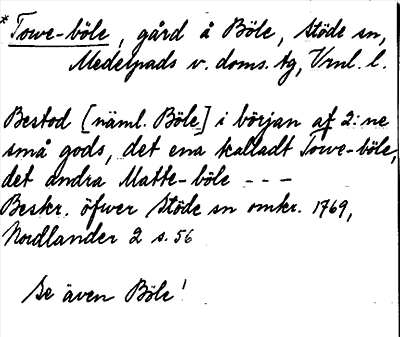 *Towe-böle, gård å Böle, Stöde sn,
Medelpads v. doms. tg, Vrnl. l.
Bestod [näml. Böle] i början af 2:ne
små gods, det ena kalladt Towe-böle,
det andra Matte-böle - - -
Beskr. öfwer Stöde sn omkr. 1769,
Nordlander 2 s. 56
Se även Böle!